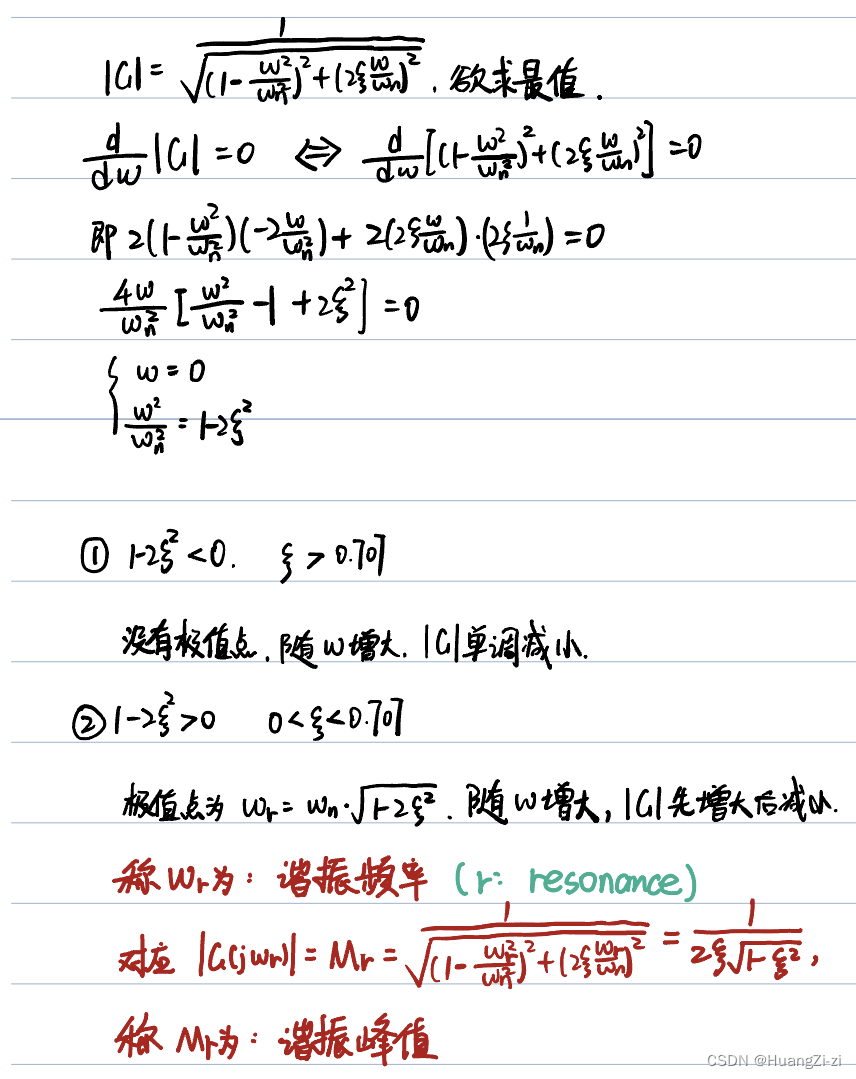 |G| = 1/√((1-ω²/ωn²)²+(2ξω/ωn)²) . 欲求最值.
d/dω |G| = 0 ⇔ d/dω[(1-ω²/ωn²)²+(2ξω/ωn)²] = 0
即 2(1-ω²/ωn²)(-2ω/ωn²) + 2(2ξω/ωn)·(2ξ1/ωn) = 0
4ω/ωn² [ω²/ωn² - 1 + 2ξ²] = 0
{ ω = 0
ω²/ωn² = 1-2ξ²
① 1-2ξ² < 0. ξ > 0.707
没有极值点. 随ω增大. |G|单调减小.
② 1-2ξ² > 0 0 < ξ < 0.707
极值点为 ωr = ωn·√(1-2ξ²) . 随ω增大, |G|先增大后减小.
称ωr为: 谐振频率 (r: resonance)
对应 |G(jωr)| = Mr = 1/√((1-ωr²/ωn²)²+(2ξωr/ωn)²) = 1/(2ξ√(1-ξ²)) ,
称 Mr为: 谐振峰值
CSDN @HuangZi-zi